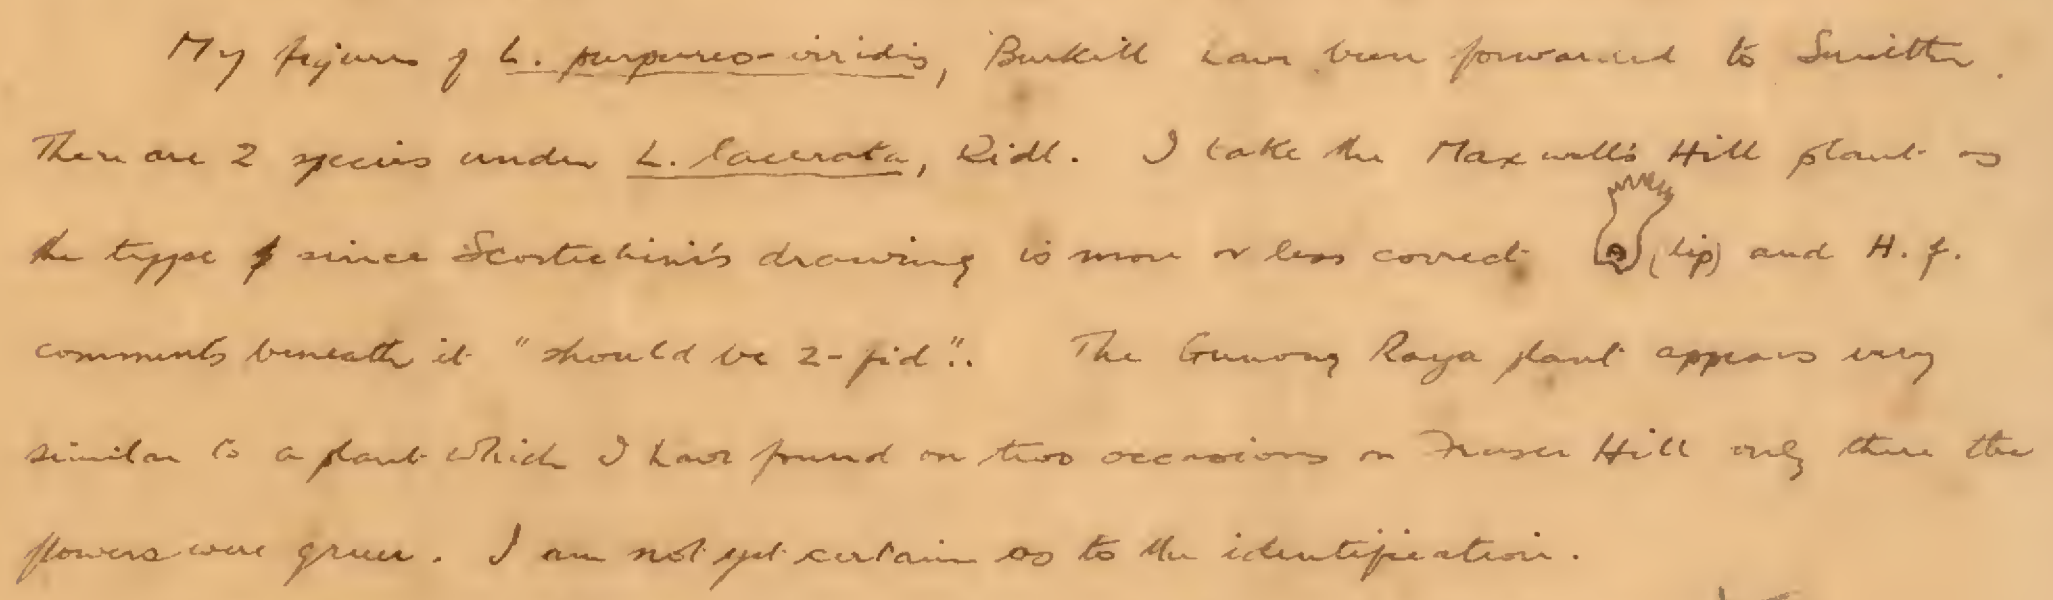 My figures of L. purpureo-viridis, Burkill have been forwarded to Smitth.
There are 2 species under L. lacerata, Ridl. I take the Maxwell's Hill plant as
the type since Scortechini's drawing is more or less correct (lip) and H. f.
comments beneath it "should be 2-fid". The Gunong Raya plant appears very
similar to a plant which I have found on two occasions on Fraser Hill only there the
flowers were green. I am not yet certain as to the identification.